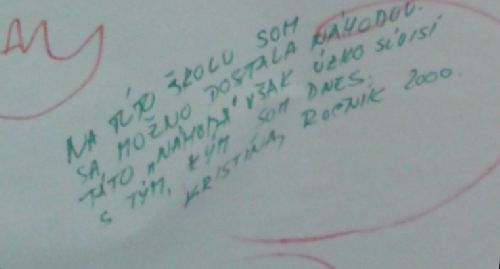 NA TÚTO ŠKOLU SOM
SA MOŽNO DOSTALA NÁHODOU.
TÁTO „NÁHODA“ VŠAK ÚZKO SÚVISÍ
S TÝM, KÝM SOM DNES.
KRISTÍNA, ROČNÍK 2000.